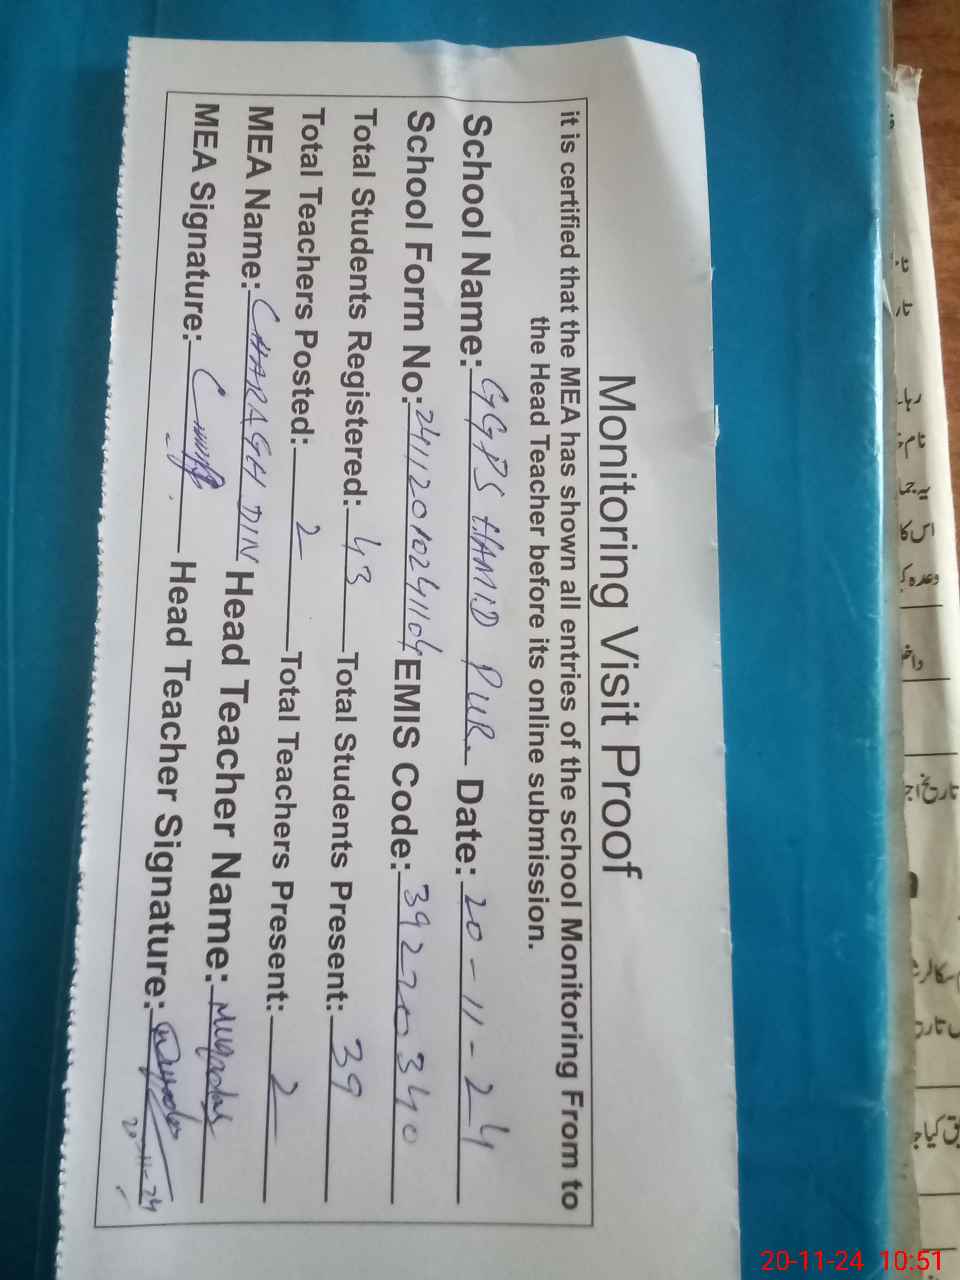 Monitoring Visit Proof
it is certified that the MEA has shown all entries of the school Monitoring From to
the Head Teacher before its online submission.
School Name: GGPS HAMID PUR. Date: 20-11-24
School Form No: EMIS Code: 39270340
Total Students Registered: 43 Total Students Present: 39
Total Teachers Posted: 2 Total Teachers Present: 2
MEA Name: CHARAGH DIN Head Teacher Name: Muqadas
MEA Signature: Head Teacher Signature:
20-11-24
نام
اس کا
وعدہ
تاریخ
20-11-24 10:51